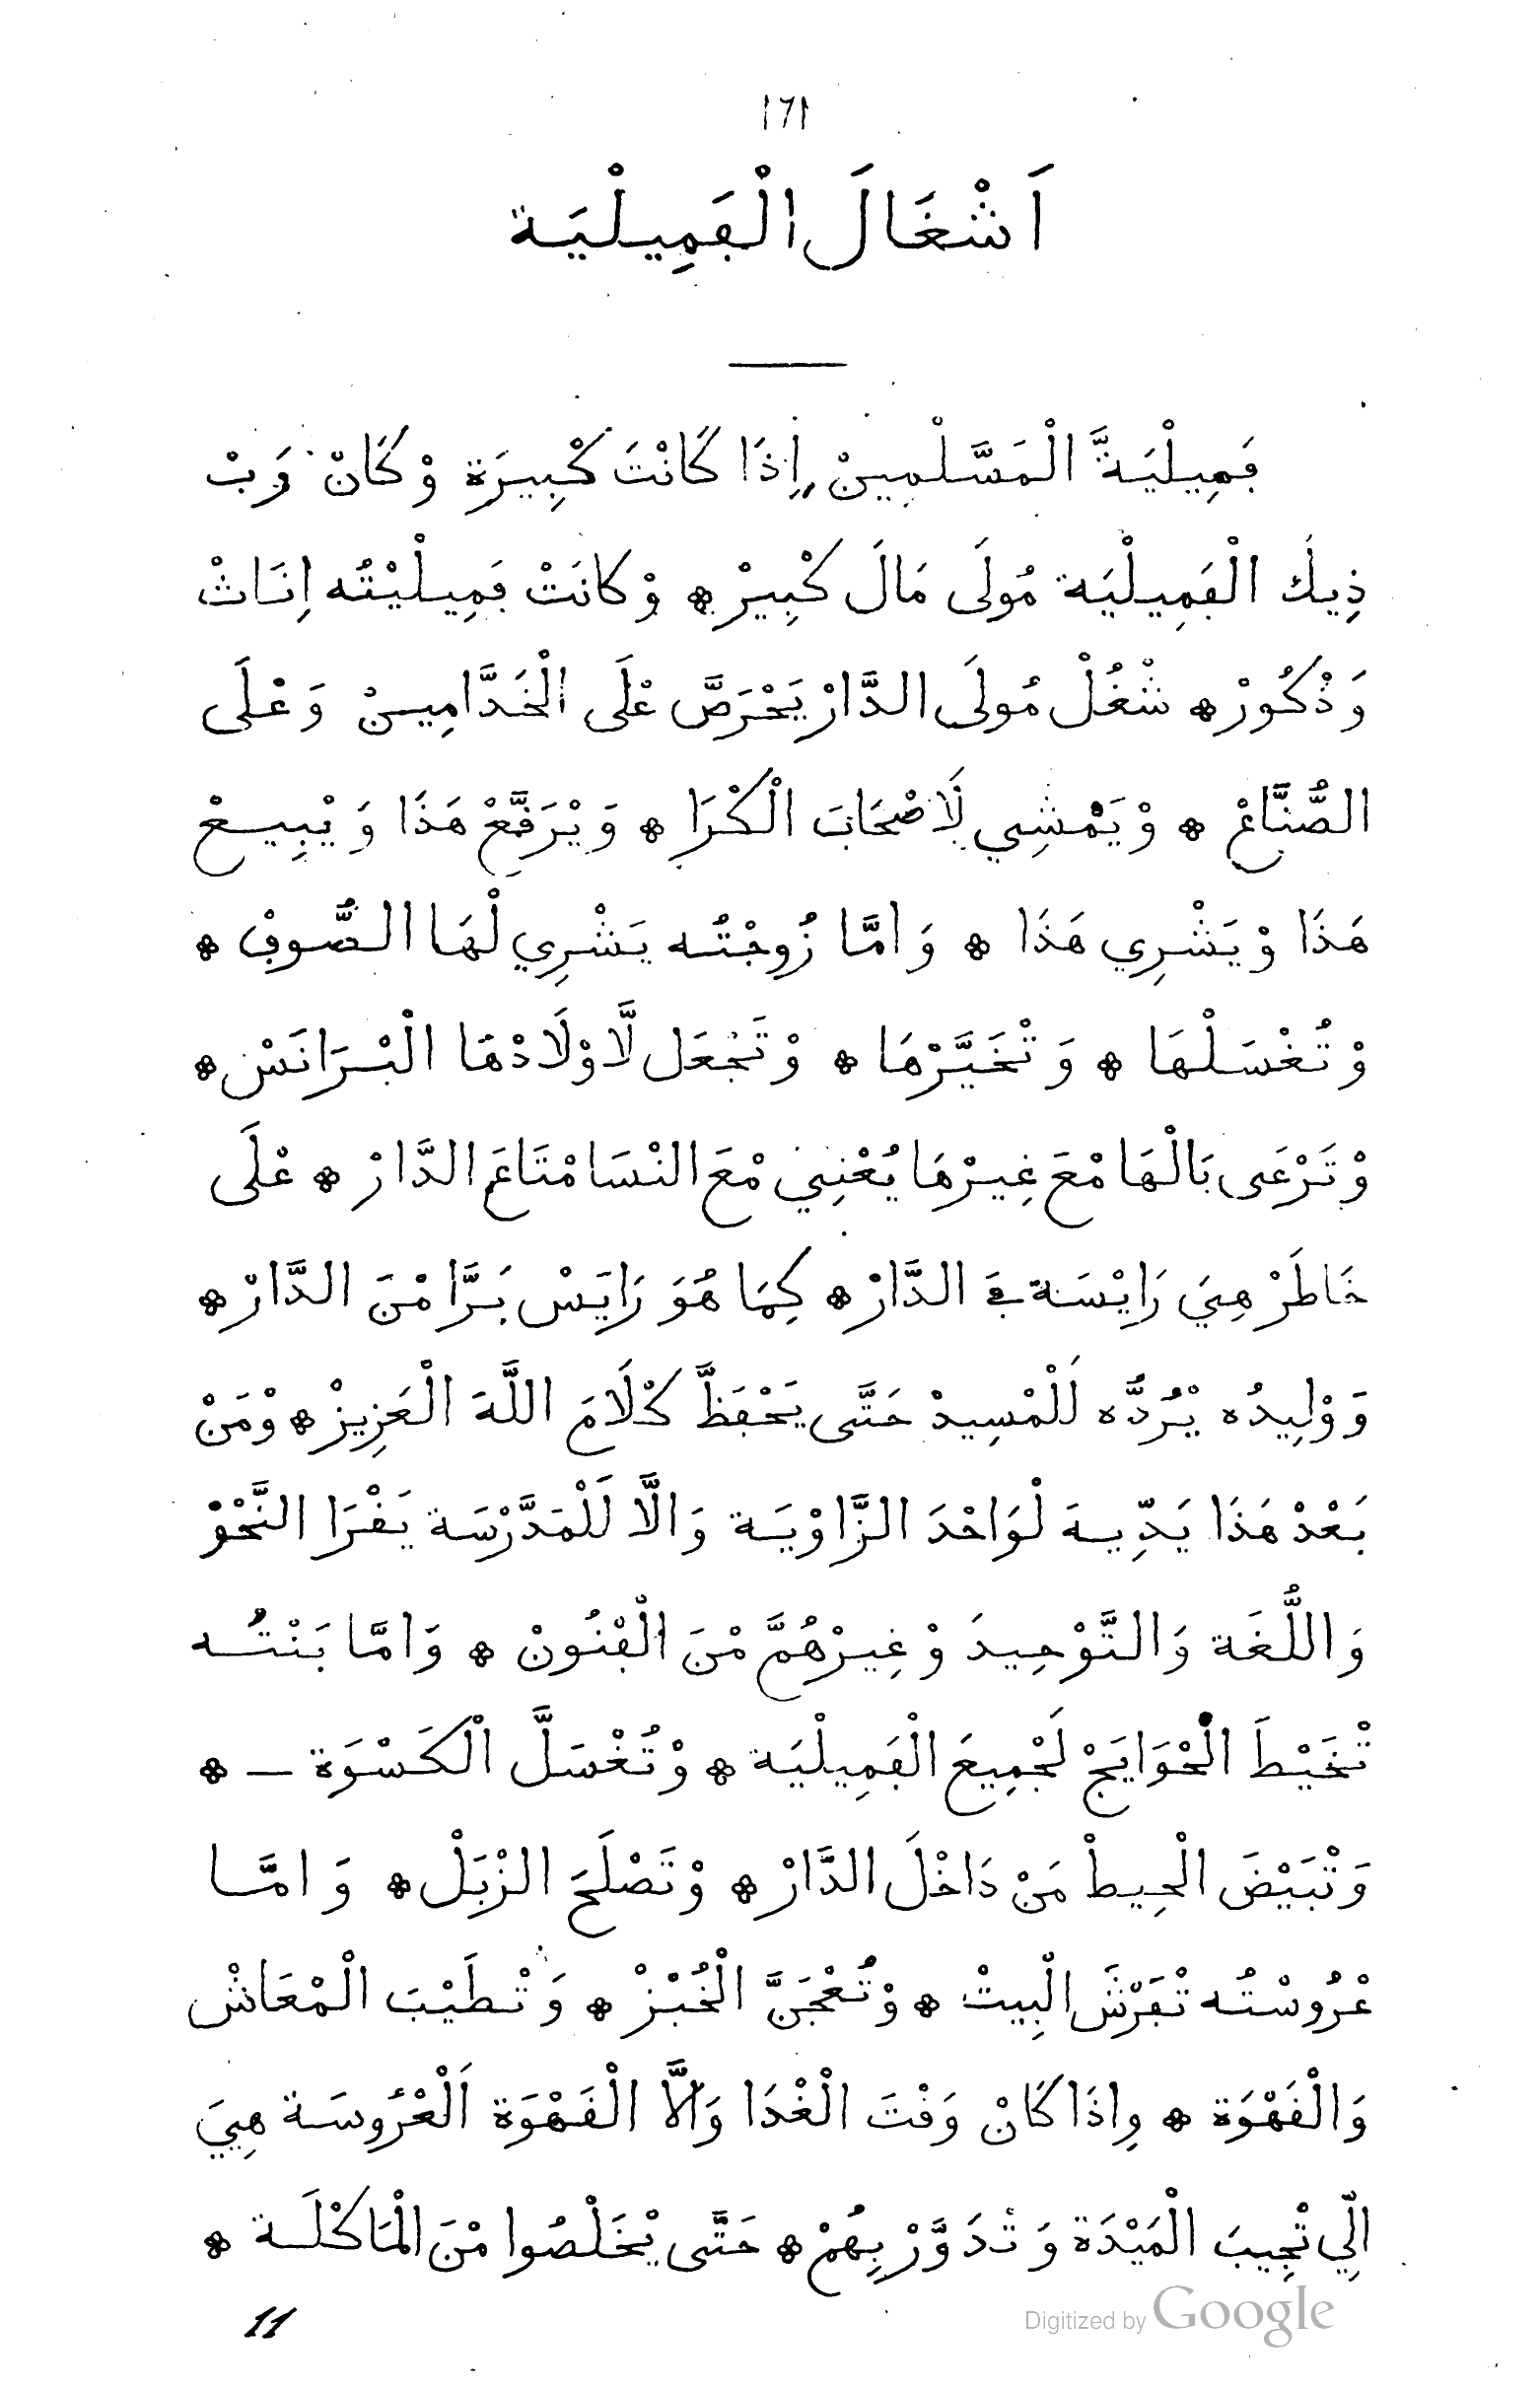 ١٦١
اَشْغَالَ الْفَمِيلْيَة
فَمِيلْيَةَّ الْمَسَّلْمِينْ إِذَا كَانْتَ كْبِيرَة وْكَانْ رَبْ
ذِيكَ الْفَمِيلْيَة مُولَى مَالَ كْبِيرْ * وْكَانَتْ فَمِيلْيْتُه اِنَاثْ
وَذْكُورْ * شْغُلْ مُولَى الدَّارْ يَحْرَصَّ عْلَى الْخَدَّامِينْ وَعْلَى
الصُّنَّاعْ * وْيَمْشِي لَاصْحَابَ الْكْرَا * وَيْرَقَّعْ هَذَا وَيْبِيعْ
هَذَا وْيَشْرِي هَذَا * وَامَّا زُوجْتُه يَشْرِي لْهَا الصُّوفْ *
وْتُغْسَلْهَا * وَتْخَيَّرْهَا * وْتَجْعَل لَّاوْلَادْهَا الْبْرَانَسْ *
وْتَرْعَى بَالْهَا مْعَ غِيرْهَا يُعْنِي مْعَ النْسَا مْتَاعَ الدَّارْ * عْلَى
خَاطَرْ هِيَ رَايْسَة فَ الدَّارْ * كِمَا هُوَ رَايَسْ بَرَّا مْنَ الدَّارْ *
وَوْلِيدُه يْرُدُّه لَلْمْسِيدْ حَتَّى يَحْفَظَّ كْلَامَ اللَّهَ الْعَزِيزْ * وْمَنْ
بَعْدْ هَذَا يَدِّيهَ لْوَاحْدَ الزَّاوْيَة وَالَّا لَلْمَدَّرْسَة يَقْرَا النَّحْوْ
وَاللُّغَة وَالتَّوْحِيدَ وْغِيرْهُمَّ مْنَ الْفْنُونْ * وَامَّا بَنْتُه
تْخَيْطَ الْحْوَايَجْ لَجْمِيعَ الْفَمِيلْيَة * وْتُغْسَلَّ الْكَسْوَة - *
وَتْبَيْضَ الْحِيطْ مَنْ دَاخْلَ الدَّارْ * وْتَصْلَحَ الزْبَلْ * وَامَّا
عْرُوسْتُه تْفَرْشَ الْبِيتْ * وْتُعْجَنَّ الْخُبْزْ * وَتْطَيْبَ الْمْعَاشْ
وَالْقَهْوَة * وِاذَا كَانْ وَقْتَ الْغْدَا وَالَّا الْقَهْوَة اَلْعْرُوسَة هِيَ
الِّي تْجِيبَ الْمَيْدَة وَتْدَوَّرْ بِهُمْ * حَتَّى يْخَلْصُوا مْنَ الْمَاكْلَة *
11
Digitized by Google